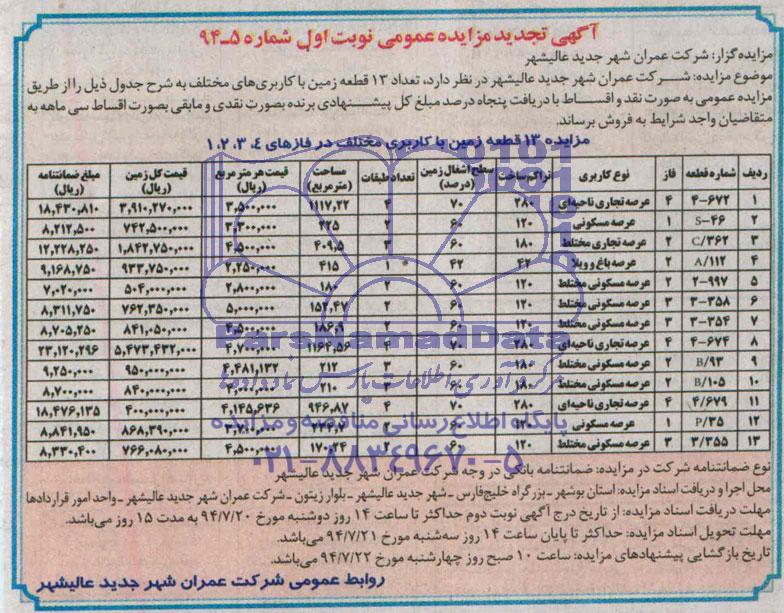 آگهی تجدید مزایده عمومی نوبت اول شماره ۵ـ۹۴
مزایده‌گزار: شرکت عمران شهر جدید عالیشهر
موضوع مزایده: شرکت عمران شهر جدید عالیشهر در نظر دارد، تعداد ۱۳ قطعه زمین با کاربری‌های مختلف به شرح جدول ذیل را از طریق
مزایده عمومی به صورت نقد و اقساط با دریافت پنجاه درصد مبلغ کل پیشنهادی برنده بصورت نقدی و مابقی بصورت اقساط سی ماهه به
متقاضیان واجد شرایط به فروش برساند.
مزایده ۱۳ قطعه زمین با کاربری مختلف در فازهای ۴، ۳، ۲، ۱
ردیف شماره قطعه فاز نوع کاربری تراکم ساخت سطح اشغال زمین (درصد) تعداد طبقات مساحت (مترمربع) قیمت هر متر مربع (ریال) قیمت کل زمین (ریال) مبلغ ضمانتنامه (ریال)
۱ ۴-۶۷۲ ۴ عرصه تجاری ناحیه‌ای ۲۸۰ ۷۰ ۴ ۱۱۱۷,۲۲ ۳,۵۰۰,۰۰۰ ۳,۹۱۰,۲۷۰,۰۰۰ ۱۸,۴۳۰,۸۱۰
۲ S-۴۶ ۱ عرصه مسکونی ۱۲۰ ۶۰ ۲ ۲۲۵ ۳,۳۰۰,۰۰۰ ۷۴۲,۵۰۰,۰۰۰ ۸,۲۱۲,۵۰۰
۳ C/۳۶۲ ۲ عرصه تجاری مختلط ۱۸۰ ۶۰ ۳ ۴۰۹,۵ ۴,۵۰۰,۰۰۰ ۱,۸۴۲,۷۵۰,۰۰۰ ۱۲,۲۲۸,۲۵۰
۴ A/۱۱۲ ۲ عرصه باغ و ویلا ۴۲ ۴۲ ۱ ۴۱۵ ۲,۲۵۰,۰۰۰ ۹۳۳,۷۵۰,۰۰۰ ۹,۱۶۸,۷۵۰
۵ ۲-۹۹۷ ۲ عرصه مسکونی مختلط ۱۲۰ ۶۰ ۲ ۱۸۰ ۲,۸۰۰,۰۰۰ ۵۰۴,۰۰۰,۰۰۰ ۷,۰۲۰,۰۰۰
۶ ۳-۳۵۸ ۳ عرصه مسکونی مختلط ۱۲۰ ۶۰ ۲ ۱۵۲,۴۷ ۵,۰۰۰,۰۰۰ ۷۶۲,۳۵۰,۰۰۰ ۸,۳۱۱,۷۵۰
۷ ۳-۳۵۴ ۳ عرصه مسکونی مختلط ۱۲۰ ۶۰ ۲ ۱۸۶,۹ ۴,۵۰۰,۰۰۰ ۸۴۱,۰۵۰,۰۰۰ ۸,۷۰۵,۲۵۰
۸ ۴-۶۷۴ ۴ عرصه تجاری ناحیه‌ای ۲۸۰ ۷۰ ۴ ۱۱۶۴,۵۶ ۴,۷۰۰,۰۰۰ ۵,۴۷۳,۴۳۲,۰۰۰ ۲۳,۱۲۰,۲۹۶
۹ B/۹۳ ۲ عرصه مسکونی مختلط ۱۸۰ ۶۰ ۳ ۲۱۲ ۴,۴۸۱,۱۳۲ ۹۵۰,۰۰۰,۰۰۰ ۹,۲۵۰,۰۰۰
۱۰ B/۱۰۵ ۲ عرصه مسکونی مختلط ۱۸۰ ۶۰ ۳ ۲۱۰ ۴,۰۰۰,۰۰۰ ۸۴۰,۰۰۰,۰۰۰ ۸,۷۰۰,۰۰۰
۱۱ ۴/۶۷۹ ۴ عرصه تجاری ناحیه‌ای ۲۸۰ ۷۰ ۴ ۹۴۶,۸۲ ۴,۱۴۵,۶۳۶ ۴۰۰,۰۰۰,۰۰۰ ۱۸,۴۷۶,۱۳۵
۱۲ P/۳۵ ۱ عرصه مسکونی ۱۲۰ ۶۰ ۲ ۸۶۸,۳۹۰,۰۰۰ ۸,۸۴۱,۹۵۰
۱۳ ۳/۳۵۵ ۳ عرصه مسکونی مختلط ۱۲۰ ۶۰ ۲ ۱۷۰,۲۴ ۴,۵۰۰,۰۰۰ ۷۶۶,۰۸۰,۰۰۰ ۸,۳۳۰,۴۰۰
ParsNamadData
مرکز گردآوری اطلاعات پارس نماد داده‌ها
پایگاه اطلاع رسانی مناقصه و مزایده
۰۲۱-۸۸۳۴۹۶۷۰-۵
نوع ضمانتنامه شرکت در مزایده: ضمانتنامه بانکی در وجه شرکت عمران شهر جدید عالیشهر
محل اجرا و دریافت اسناد مزایده: استان بوشهر ـ بزرگراه خلیج‌فارس ـ شهر جدید عالیشهر ـ بلوار زیتون ـ شرکت عمران شهر جدید عالیشهر ـ واحد امور قراردادها
مهلت دریافت اسناد مزایده: از تاریخ درج آگهی نوبت دوم حداکثر تا ساعت ۱۴ روز دوشنبه مورخ ۹۴/۷/۲۰ به مدت ۱۵ روز می‌باشد.
مهلت تحویل اسناد مزایده: حداکثر تا پایان ساعت ۱۴ روز سه‌شنبه مورخ ۹۴/۷/۲۱ می‌باشد.
تاریخ بازگشایی پیشنهادهای مزایده: ساعت ۱۰ صبح روز چهارشنبه مورخ ۹۴/۷/۲۲ می‌باشد.
روابط عمومی شرکت عمران شهر جدید عالیشهر